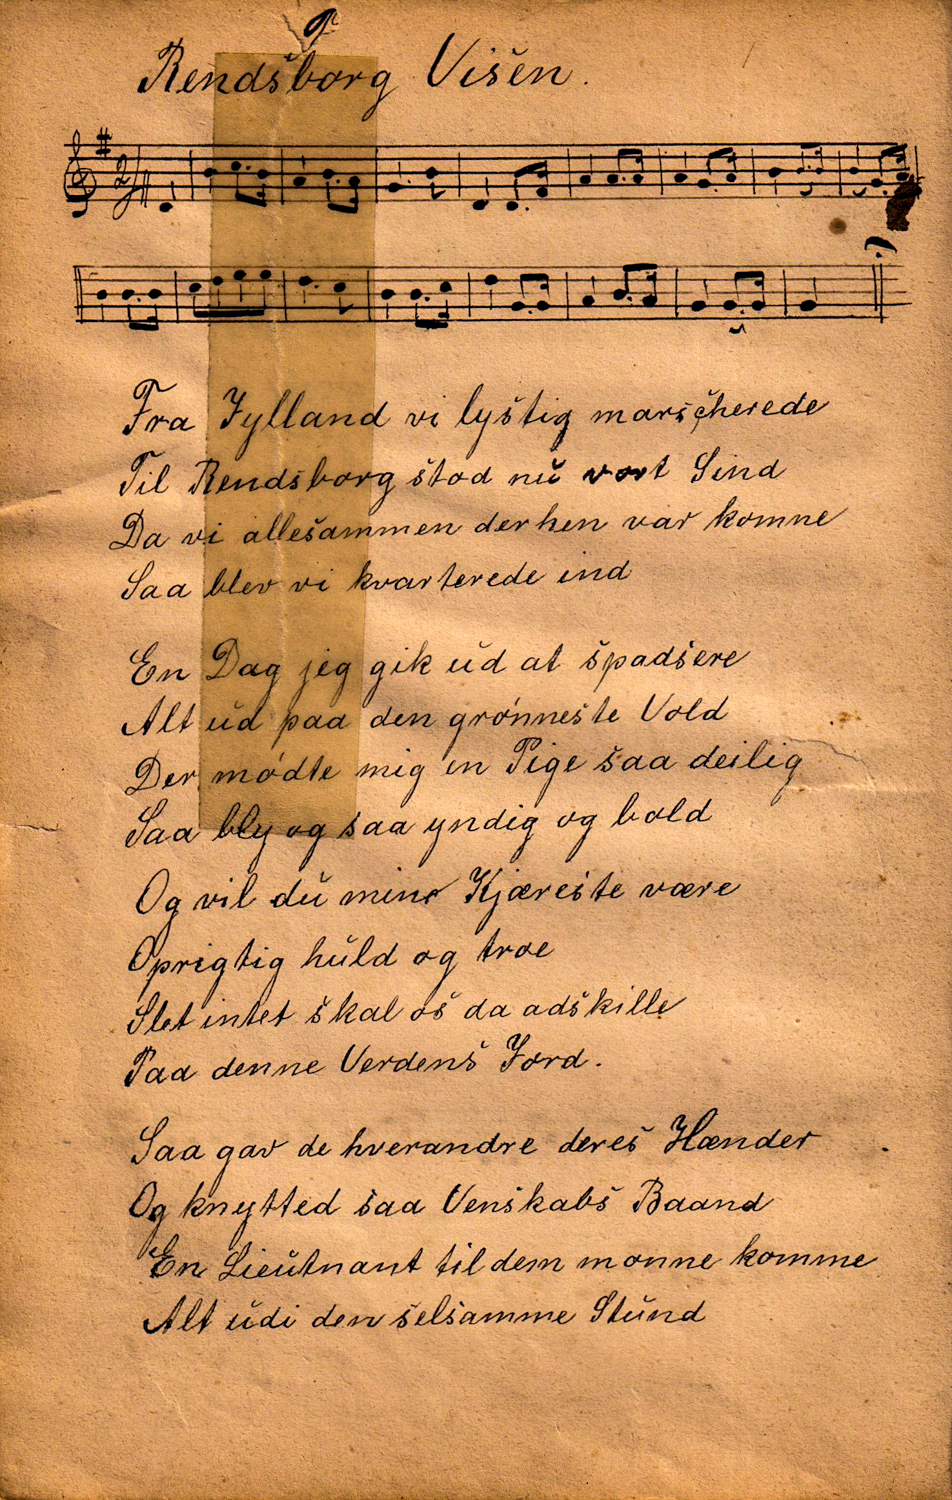 Rendsborg Visen.
Fra Jylland vi lystig marscherede
Til Rendsborg stod nu vort Sind
Da vi allesammen derhen var komne
Saa blev vi kvarterede ind
En Dag jeg gik ud at spadsere
Alt ud paa den grønneste Vold
Der mødte mig en Pige saa deilig
Saa bly og saa yndig og bold
Og vil du min Kjæreste være
Oprigtig huld og troe
Slet intet skal os da adskille
Paa denne Verdens Jord.
Saa gav de hverandre deres Hænder
Og knytted saa Venskabs Baand
En Lieutnant til dem monne komme
Alt udi den selsamme Stund